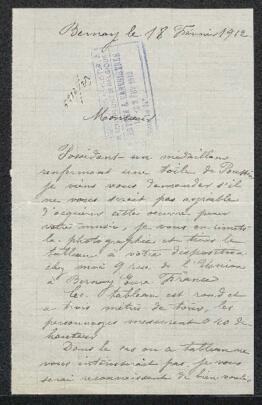 Bernay le 18 Février 1912
Monsieur
Possédant un médaillon
renfermant une toile de Poussin
je viens vous demander s'il
ne vous serait pas agréable
d'acquérir cette oeuvre pour
votre musée, je vous en
la photographie et tiens le
tableau à votre disposition
chez moi 9 rue de l'Union
à Bernay Eure France
Ce tableau est rond et
a trois mètres de tour, les
personnages mesurent 0.40 de
hauteur.
Dans le cas où ce tableau
vous intéresserait pas je vous
serai reconnaissant de bien vouloir